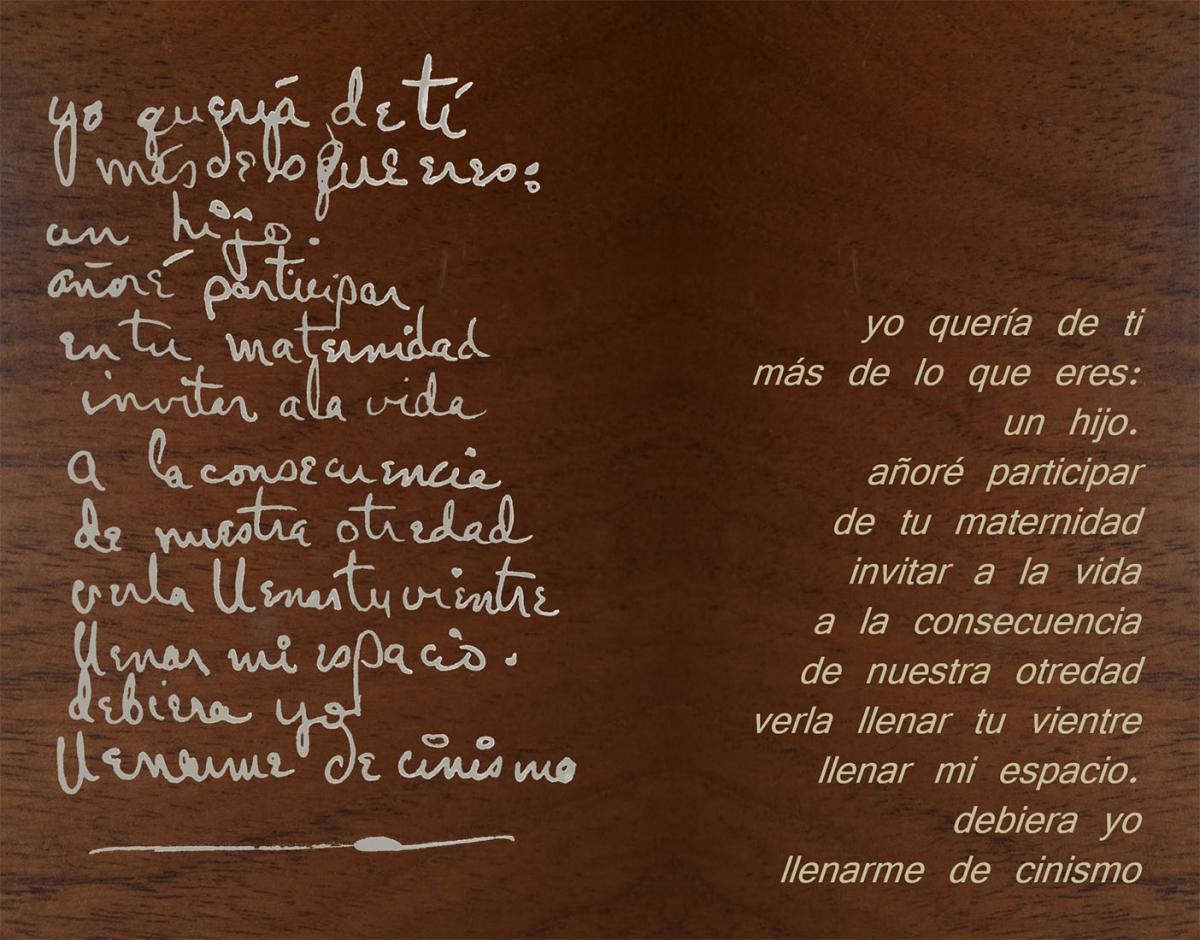 yo quería de tí
más de lo que eres:
un hijo.
añoré participar
en tu maternidad
invitar a la vida
a la consecuencia
de nuestra otredad
verla llenar tu vientre
llenar mi espacio.
debiera yo
llenarme de cinismo
yo quería de ti
más de lo que eres:
un hijo.
añoré participar
de tu maternidad
invitar a la vida
a la consecuencia
de nuestra otredad
verla llenar tu vientre
llenar mi espacio.
debiera yo
llenarme de cinismo